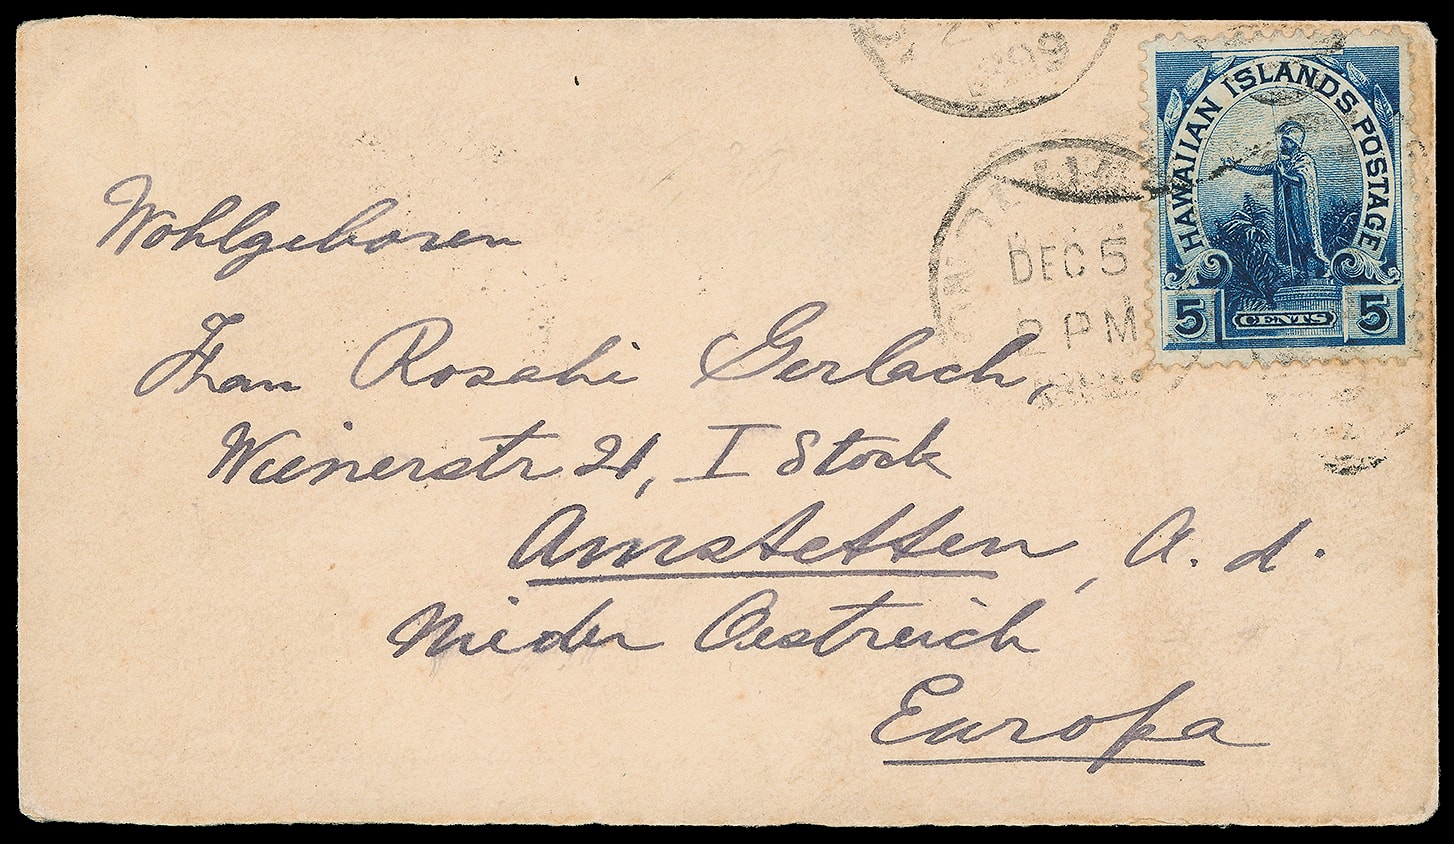 HAWAIIAN ISLANDS POSTAGE
5 CENTS 5
DEC 5
2 PM
Wohlgeboren
Frau Rosalie Gerlach,
Wienerstr 21, I Stock
Amstetten, a. d.
Nieder Oestreich
Europa